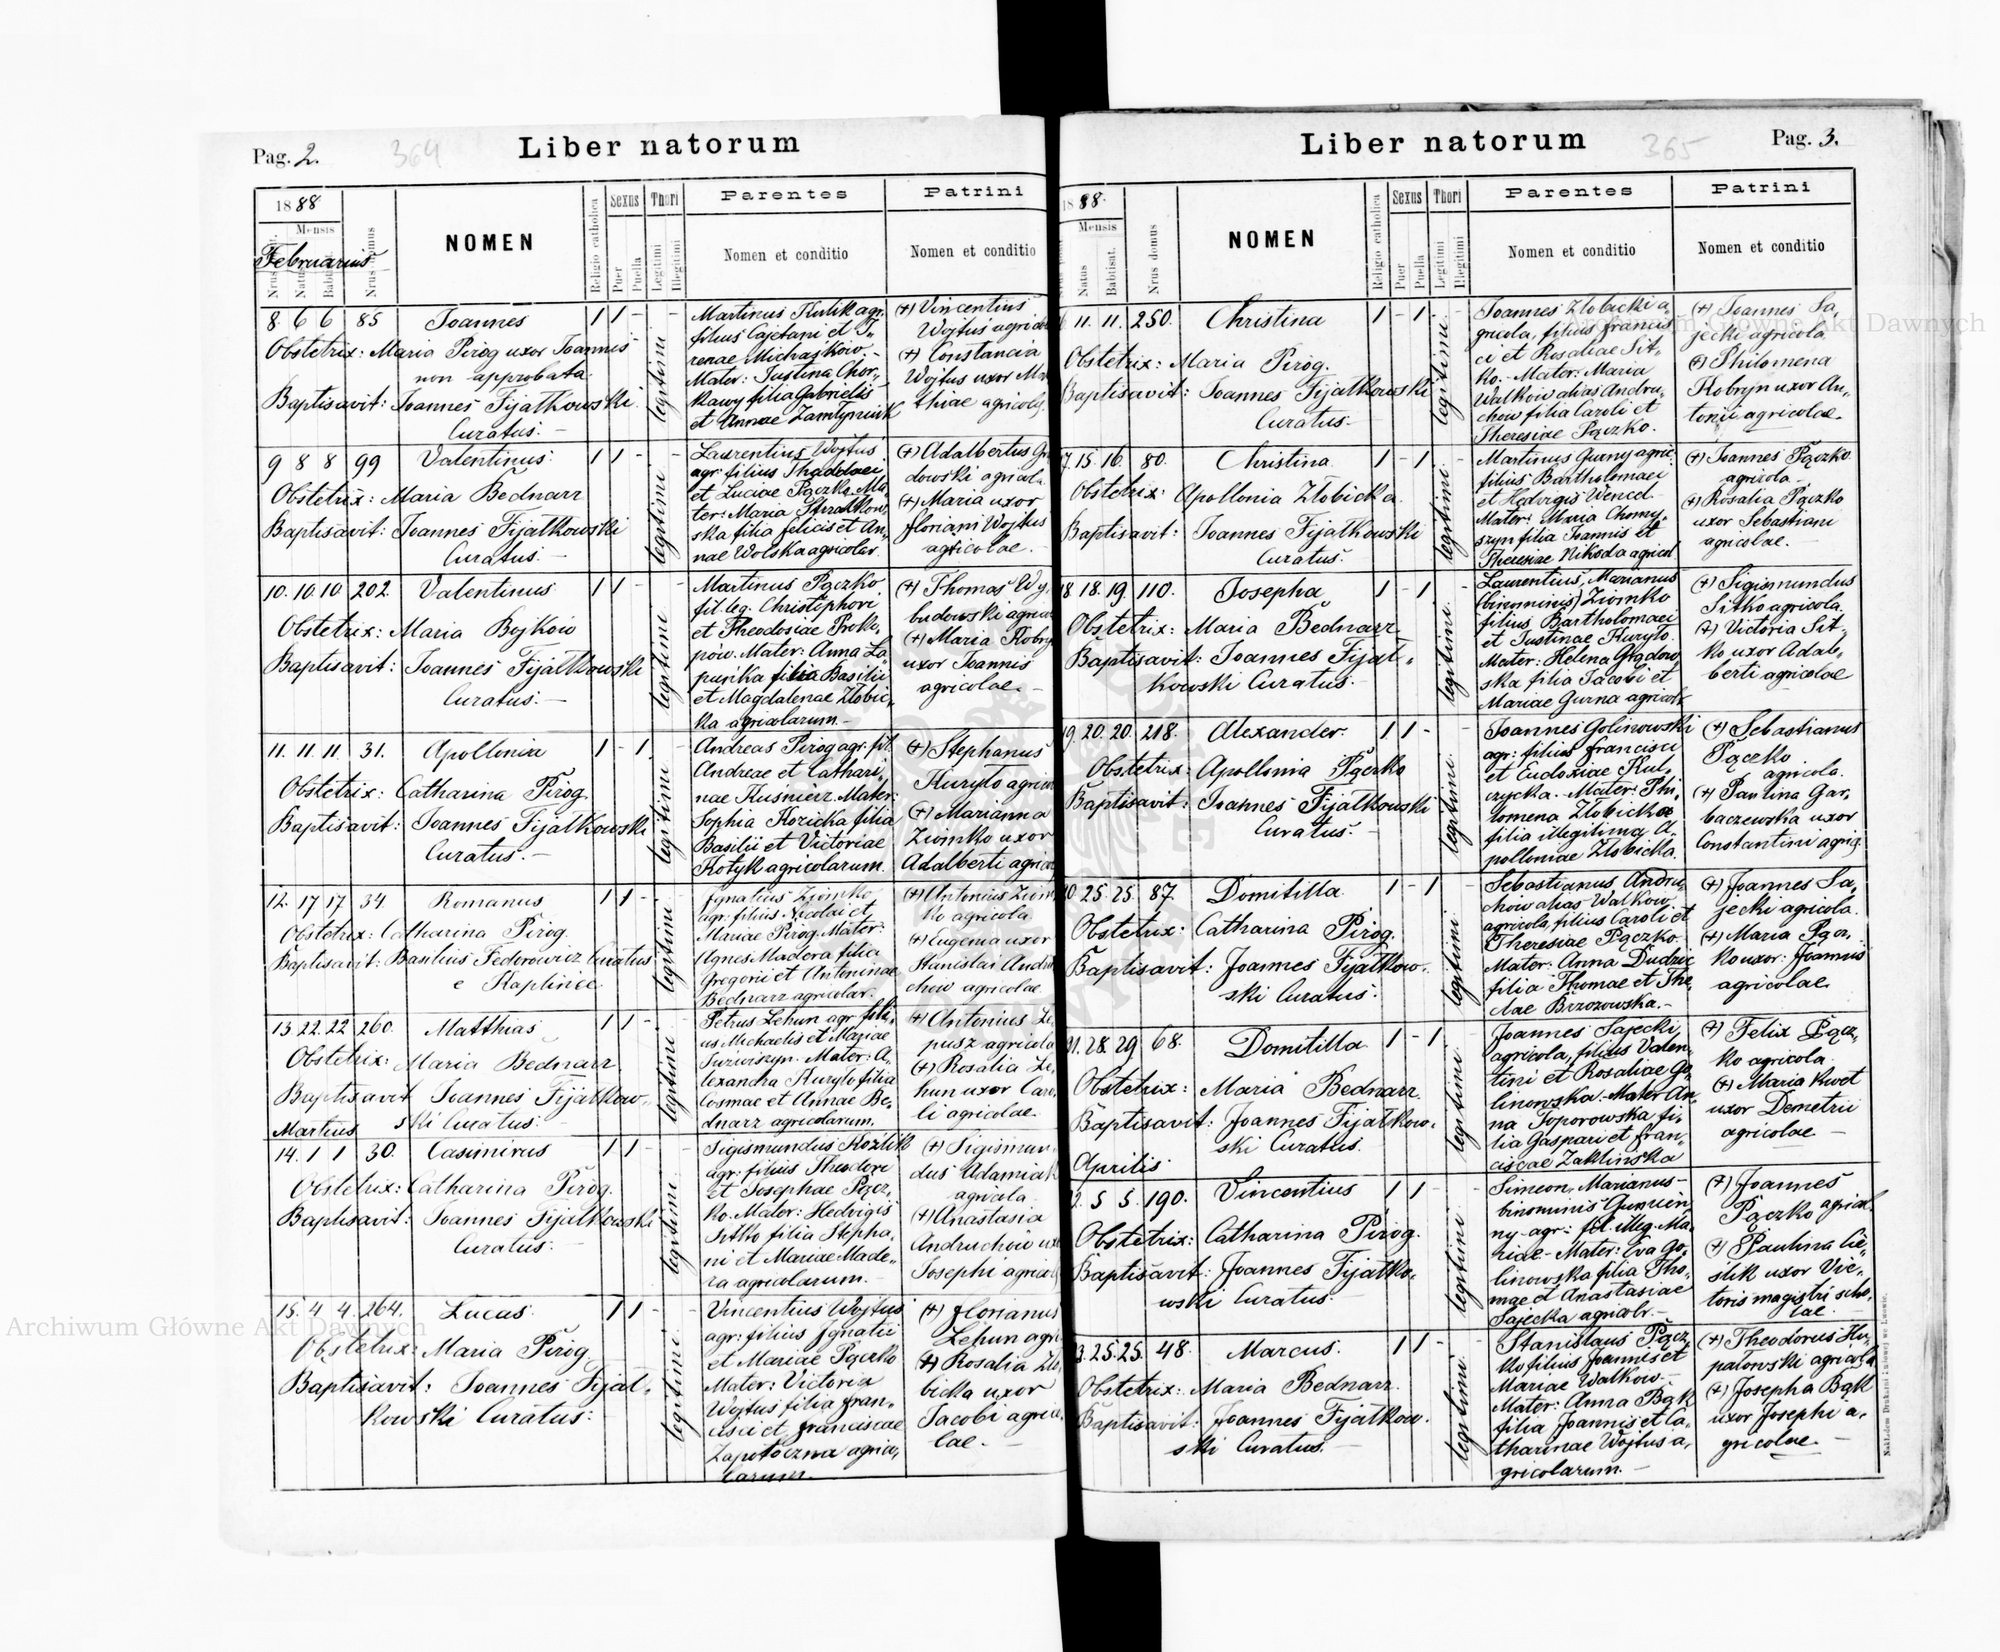 Pag. 2.
364
Liber natorum
1888
Mensis
Februarius
Natus
Nrus domus
NOMEN
Religio catholica
Sexus
Puer
Puella
Thori
Legitimi
Illegitimi
Parentes
Nomen et conditio
Patrini
Nomen et conditio
8. 6 6 85 Joannes 1 1 - legitimi -
Obstetrix: Maria Pirog uxor Joannis
non approbata.
Baptisavit: Joannes Fijałkowski
Curatus. —
Martinus Kulik agr.
filius Cajetani et I,,
renae Michajłkow. -
Mater: Justina Chor,,
kawy filia Gabrielis
et Annae
(+) Vincentius
Wojtus
(+) Constancia
Wojtus uxor
thiae agricolae
9 8 8 99 Valentinus 1 1 - legitimi -
Obstetrix: Maria Bednarz
Baptisavit: Joannes Fijałkowski
Curatus. —
Laurentius Wojtus
agr: filius Thadolaei
et Luciae Pączko. Ma,,
ter: Maria
ska filia Felicis et An,,
nae Wolska agricolar.
(+) Adalbertus
dowski agricola
(+) Maria uxor
Floriani Wojtus
agricolae. —
10. 10. 10 202. Valentinus 1 1 - legitimi -
Obstetrix: Maria Bojkow
Baptisavit: Joannes Fijałkowski
Curatus. —
Martinus Pączko
fil. leg. Christiphori
et Theodosiae Prok,,
pów. Mater: Anna Ła,,
puńka filia Basilii
et Magdalenae Złobic,,
ka agricolarum —
(+) Thomas Wy,,
budowski
(+) Maria
uxor Joannis
agricolae. —
11. 11. 11. 31. Apollonia 1 - 1. legitimi -
Obstetrix: Catharina Pirog.
Baptisavit: Joannes Fijałkowski
Curatus. —
Andreas Pirog agr. fil.
Andreae et Cathari,,
nae Kuśnierz. Mater:
Sophia Kozicka filia
Basilii et Victoriae
Kotyk agricolarum.
(+) Stephanus
Kuryło
(+) Marianna
Ziomko uxor
Adalberti
12. 17 17 34 Romanus 1 1 - legitimi -
Obstetrix: Catharina Pirog.
Baptisavit: Basilius Fedorowicz Curatus
e Kaplince.
Ignatius Ziomko
agr. filius Nicolai et
Mariae Pirog. Mater:
Agnes Madera filia
Gregorii et Antoninae
Bednarz agricolar.
(+) Antonius
ko agricola
(+) Eugenia uxor
Stanislai
chow agricolae
13 22. 22 260. Matthias 1 1 - legitimi
Obstetrix: Maria Bednarz
Baptisavit Joannes Fijałkow,,
ski Curatus. —
Petrus Lehun agr. fili,,
us Michaelis et Mariae
Mater: A,,
lexandra Kuryło filia
Cosmae et Annae Be,,
dnarz agricolarum.
(+) Antonius Le,,
pusz agricola
(+) Rosalia Le,,
hun uxor Caro,,
li agricolae.
Martius
14. 1 1 30. Casimirus 1 1 - legitimi
Obstetrix: Catharina Pirog.
Baptisavit: Joannes Fijałkowski
Curatus: —
Sigismundus Koźlik
agr: filius Theodori
et Josephae Pącz,,
ko. Mater: Hedvigis
Sitko filia Stepha,,
ni et Mariae Made,,
ra agricolarum. —
(+) Sigismun
dus Adamiak
agricola
(+) Anastasia
Andruchow
Josephi
15. 4 4. 264. Lucas 1 1 - legitimi
Obstetrix: Maria Pirog
Baptisavit: Joannes Fijał,,
kowski Curatus: —
Vincentius Wojtus
agr: filius Ignatii
et Mariae Pączko
Mater: Victoria
Wojtus filia Fran,,
cisci et Franciscae
Zapotoczna agrico,,
larum. —
(+) Florianus
Lehun
(+) Rosalia Zło,,
bicka uxor
Jacobi
lae. —
Liber natorum
365
Pag. 3.
1888.
Mensis
Natus
Babtisat.
Nrus domus
NOMEN
Religio catholica
Sexus
Puer
Puella
Thori
Legitimi
Illegitimi
Parentes
Nomen et conditio
Patrini
Nomen et conditio
11. 11. 250. Christina 1 - 1 legitimi -
Obstetrix: Maria Pirog.
Baptisavit: Joannes Fijałkowski
Curatus. —
Joannes Złobicki a,,
gricola, filius Francis,,
ci et Rosaliae Sit,,
ko. - Mater: Maria
Walkow alias Andru,,
chow filia Caroli et
Theresiae Pączko.
(+) Joannes Sa,,
jecki agricola.
(+) Philomena
Kobryn uxor An,,
tonii agricolae. -
7. 15. 16. 80. Christina 1 - 1 legitimi -
Obstetrix: Apollonia Złobicka
Baptisavit: Joannes Fijałkowski
Curatus. —
Martinus Gurny agric.
filius Bartholomaei
et Hedvigis Wencel.
Mater: Maria Chomy,,
szyn filia Joannis et
Theresiae Nikoda agricol
(+) Joannes Pączko
agricola.
(+) Rosalia Pączko
uxor Sebastiani
agricolae. —
18 18. 19. 110. Josepha 1 - 1 legitimi -
Obstetrix: Maria Bednarz
Baptisavit: Joannes Fijał,,
kowski Curatus. —
Laurentius, Marianus
(binominis) Ziomko
filius Bartholomaei
et Justinae Kuryło.
Mater: Helena Głądow,,
ska filia Jacobi et
Mariae Gurna agricolr
(+) Sigismundus
Sitko agricola.
(+) Victoria Sit,,
ko uxor Adal,,
berti agricolae
19. 20. 20. 218. Alexander 1 1 - legitimi
Obstetrix: Apollonia Pączko
Baptisavit: Joannes Fijałkowski
Curatus. —
Joannes Golinowski
agr: filius Francisci
et Eudoxiae Kul,,
czycka. - Mater: Phi,,
lomena Złobicka
filia illegitima A,,
polloniae Złobicka.
(+) Sebastianus
Pączko
agricola.
(+) Paulina Gar,,
baczewska uxor
Constantini agric.
0. 25. 25. 87. Domitilla 1 - 1 legitimi -
Obstetrix: Catharina Pirog.
Baptisavit: Joannes Fijałkow,,
ski Curatus. —
Sebastianus Andru,,
chow alias Walkow
agricola, filius Caroli et
Theresiae Pączko.
Mater: Anna Dudzic
filia Thomae et The,,
clae Brzozowska. —
(+) Joannes Sa,,
jecki agricola.
(+) Maria Pącz,,
ko uxor: Joannis
agricolae.
21. 28. 29 68. Domitilla 1 - 1 legitimi -
Obstetrix: Maria Bednarz.
Baptisavit: Joannes Fijałkow,,
ski Curatus. —
Joannes Sajecki
agricola, filius Valen,,
tini et Rosaliae Go,,
linowska. - Mater: An,,
na Toporowska fi,,
lia Gaspari et Fran,,
ciscae Zaklińska
(+) Felix Pącz,,
ko agricola
(+) Maria Kwet
uxor Demetrii
agricolae —
Aprilis
2. 5 5. 190. Vincentius 1 1 - legitimi
Obstetrix: Catharina Pirog.
Baptisavit: Joannes Fijałko,,
wski Curatus. —
Simeon, Marianus -
binominis
ny - agr: fil. illeg. Ma,,
riae - Mater: Eva Go,,
linowska filia Tho,,
mae et Anastasiae
Sajecka agricolr. —
(+) Joannes
Pączko agricol.
(+) Paulina Cie,,
ślik uxor Vic,,
toris magistri scho,,
lae
3. 25. 25. 48. Marcus. 1 1 - legitimi
Obstetrix: Maria Bednarz.
Baptisavit: Joannes Fijałkow,,
ski Curatus. —
Stanislaus Pącz,,
ko filius Joannis et
Mariae Walkow.
Mater: Anna Bąk
filia Joannis et Ca,,
tharinae Wojtus a,,
gricolarum. —
(+) Theodorus Hu,,
palowski agricola
(+) Josepha Bąk
uxor Josephi a,,
gricolae. —
Nakładem Drukarni Ludowej we Lwowie.
Archiwum Główne Akt Dawnych
Archiwum Główne Akt Dawnych